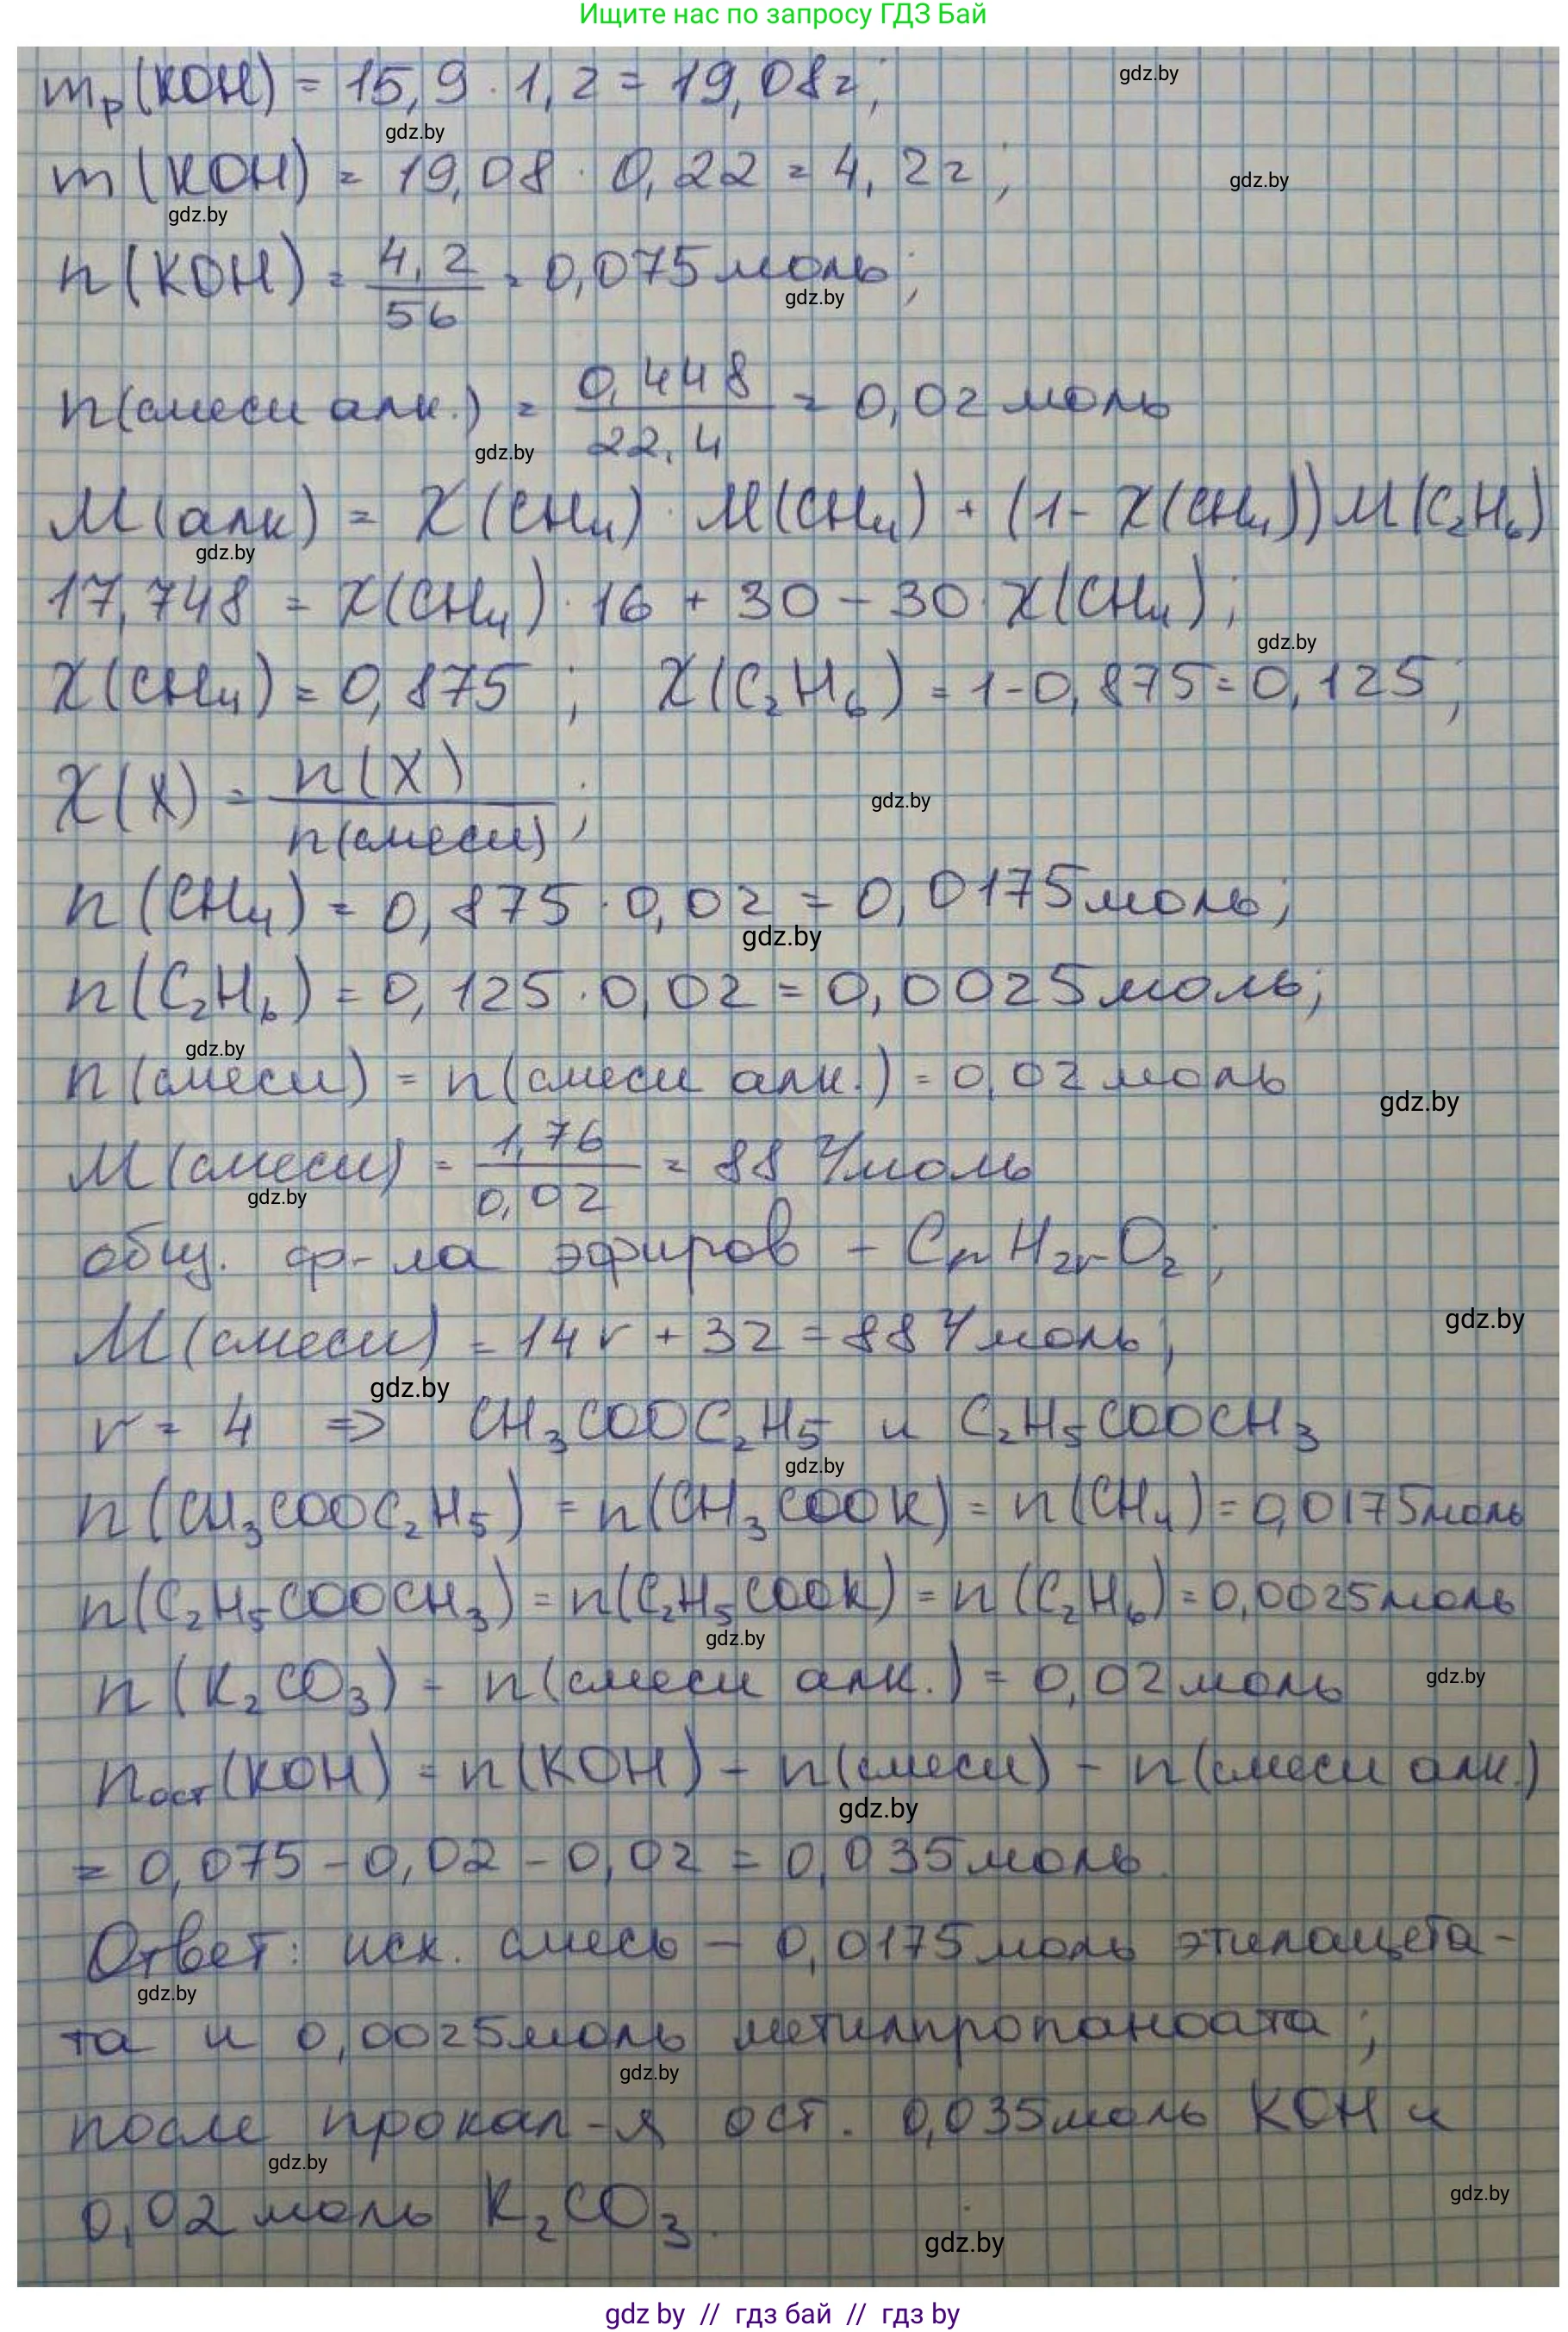 Ищите нас по запросу ГДЗ Бай
mр(KOH) = 15,9 · 1,2 = 19,08г;
gdz.by
gdz.by
m(KOH) = 19,08 · 0,22 = 4,2г;
gdz.by
gdz.by
n(KOH) = 4,2/56 = 0,075моль;
gdz.by
n(смеси алк.) = 0,448/22,4 = 0,02 моль
gdz.by
M(алк) = χ(CH₄) · M(CH₄) + (1 - χ(CH₄)) M(C₂H₆)
gdz.by
17,748 = χ(CH₄) · 16 + 30 - 30 · χ(CH₄);
gdz.by
χ(CH₄) = 0,875 ; χ(C₂H₆) = 1-0,875 = 0,125;
χ(X) = n(X)/n(смеси);
gdz.by
n(CH₄) = 0,875 · 0,02 = 0,0175моль;
gdz.by
n(C₂H₆) = 0,125 · 0,02 = 0,0025моль;
gdz.by
n(смеси) = n(смеси алк.) = 0,02 моль
gdz.by
M(смеси) = 1,76/0,02 = 88 г/моль
gdz.by
общ. ф-ла эфиров - CnH2nO₂;
M(смеси) = 14n + 32 = 88 г/моль;
gdz.by
gdz.by
n = 4 => CH₃COOC₂H₅ и C₂H₅COOCH₃
gdz.by
n(CH₃COOC₂H₅) = n(CH₃COOK) = n(CH₄) = 0,0175моль
n(C₂H₅COOCH₃) = n(C₂H₅COOK) = n(C₂H₆) = 0,0025моль
gdz.by
n(K₂CO₃) = n(смеси алк.) = 0,02 моль
gdz.by
nост(KOH) = n(KOH) - n(смеси) - n(смеси алк.)
gdz.by
= 0,075 - 0,02 - 0,02 = 0,035 моль.
Ответ: исх. смесь - 0,0175 моль этилацета-
gdz.by
та и 0,0025моль метилпропаноата;
gdz.by
после прокал-я ост. 0,035моль KOH и
gdz.by
0,02 моль K₂CO₃.
gdz.by
gdz.by
gdz by // гдз бай // гдз by